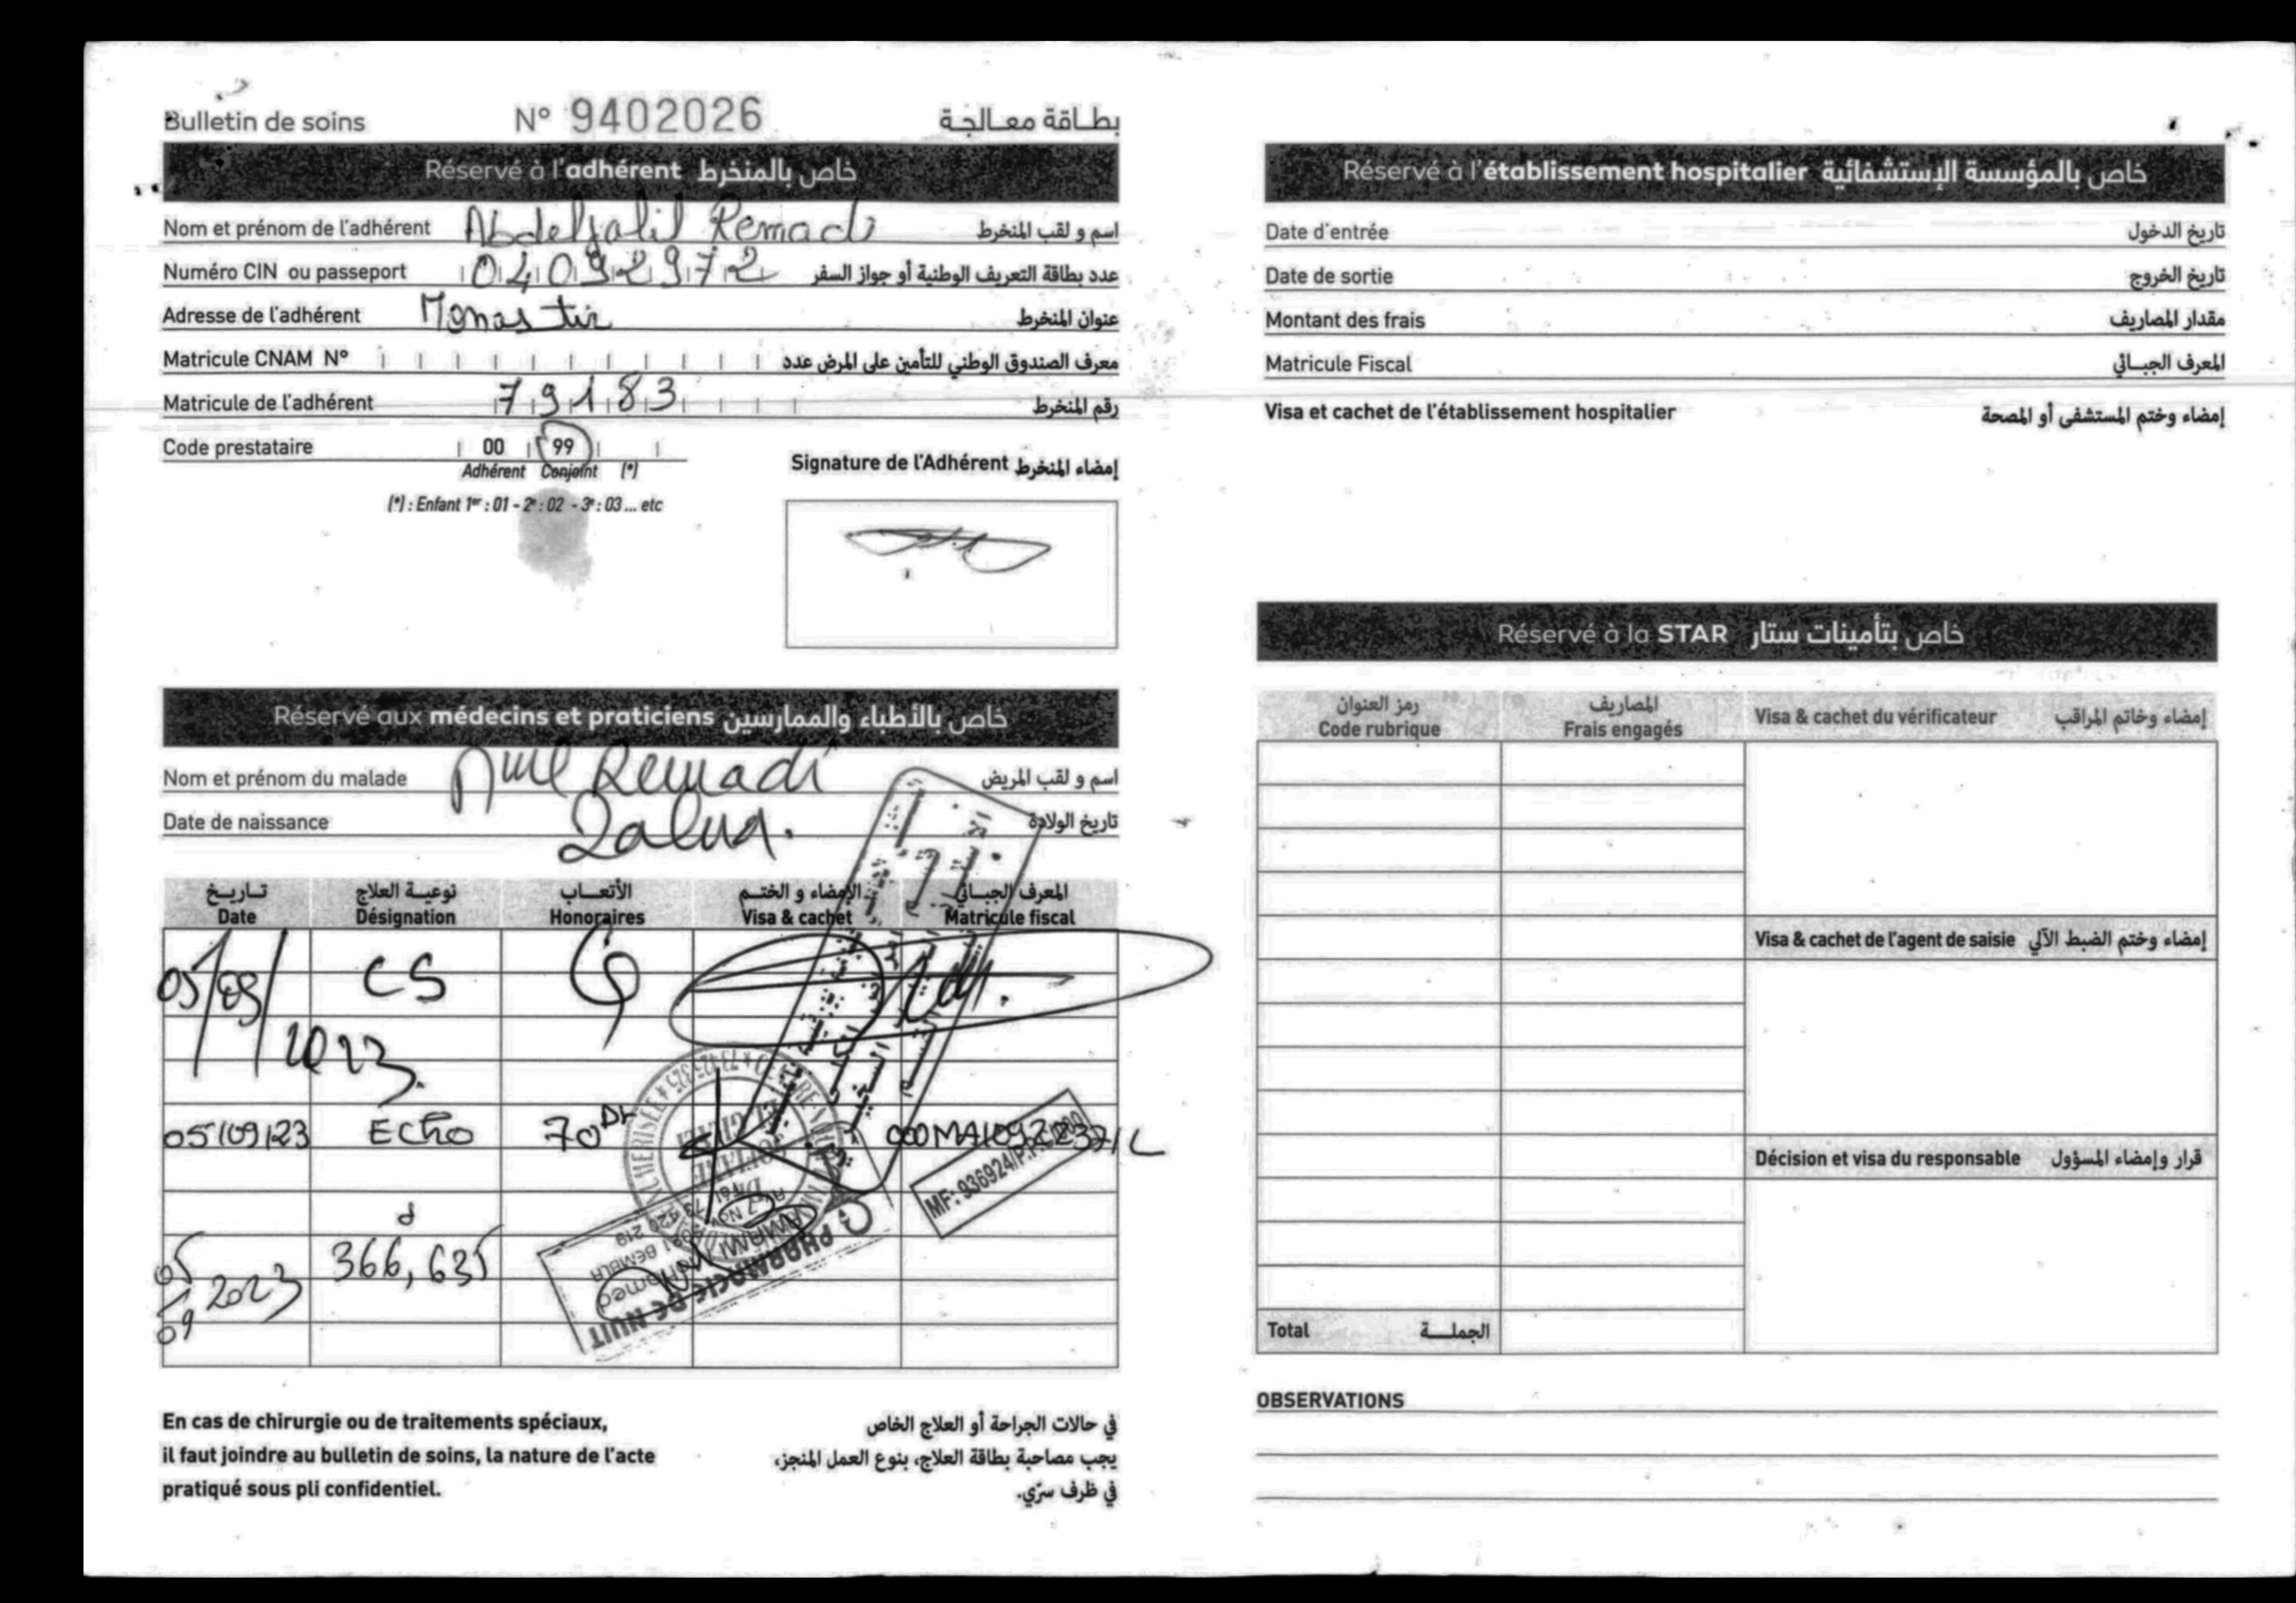 Bulletin de soins N° 9402026 بطاقة معالجة
Réservé à l'adhérent خاص بالمنخرط
Nom et prénom de l'adhérent Abdeljalil Remadi اسم و لقب المنخرط
Numéro CIN ou passeport 04092972 عدد بطاقة التعريف الوطنية أو جواز السفر
Adresse de l'adhérent Monastir عنوان المنخرط
Matricule CNAM N° معرف الصندوق الوطني للتأمين على المرض عدد
Matricule de l'adhérent 79183 رقم المنخرط
Code prestataire 00 99
Adhérent Conjoint (*)
(*) : Enfant 1er : 01 - 2e : 02 - 3e : 03 ... etc
Signature de l'Adhérent إمضاء المنخرط
Réservé aux médecins et praticiens خاص بالأطباء والممارسين
Nom et prénom du malade Mme Remadi اسم و لقب المريض
Date de naissance تاريخ الولادة
تاريخ نوعية العلاج الأتعاب الإمضاء و الختم المعرف الجبائي
Date Désignation Honoraires Visa & cachet Matricule fiscal
05/09/2023 CS
05/09/23 ECHO 70 DT
MF: 936924/P
05/09/2023 366,635 d
PHARMACIE DE NUIT
En cas de chirurgie ou de traitements spéciaux,
il faut joindre au bulletin de soins, la nature de l'acte
pratiqué sous pli confidentiel.
في حالات الجراحة أو العلاج الخاص
يجب مصاحبة بطاقة العلاج، بنوع العمل المنجز،
في ظرف سرّي.
Réservé à l'établissement hospitalier خاص بالمؤسسة الإستشفائية
Date d'entrée تاريخ الدخول
Date de sortie تاريخ الخروج
Montant des frais مقدار المصاريف
Matricule Fiscal المعرف الجبائي
Visa et cachet de l'établissement hospitalier إمضاء وختم المستشفى أو المصحة
Réservé à la STAR خاص بتأمينات ستار
رمز العنوان المصاريف
Code rubrique Frais engagés Visa & cachet du vérificateur إمضاء وخاتم المراقب
Visa & cachet de l'agent de saisie إمضاء وختم الضبط الآلي
Décision et visa du responsable قرار وإمضاء المسؤول
Total الجملة
OBSERVATIONS